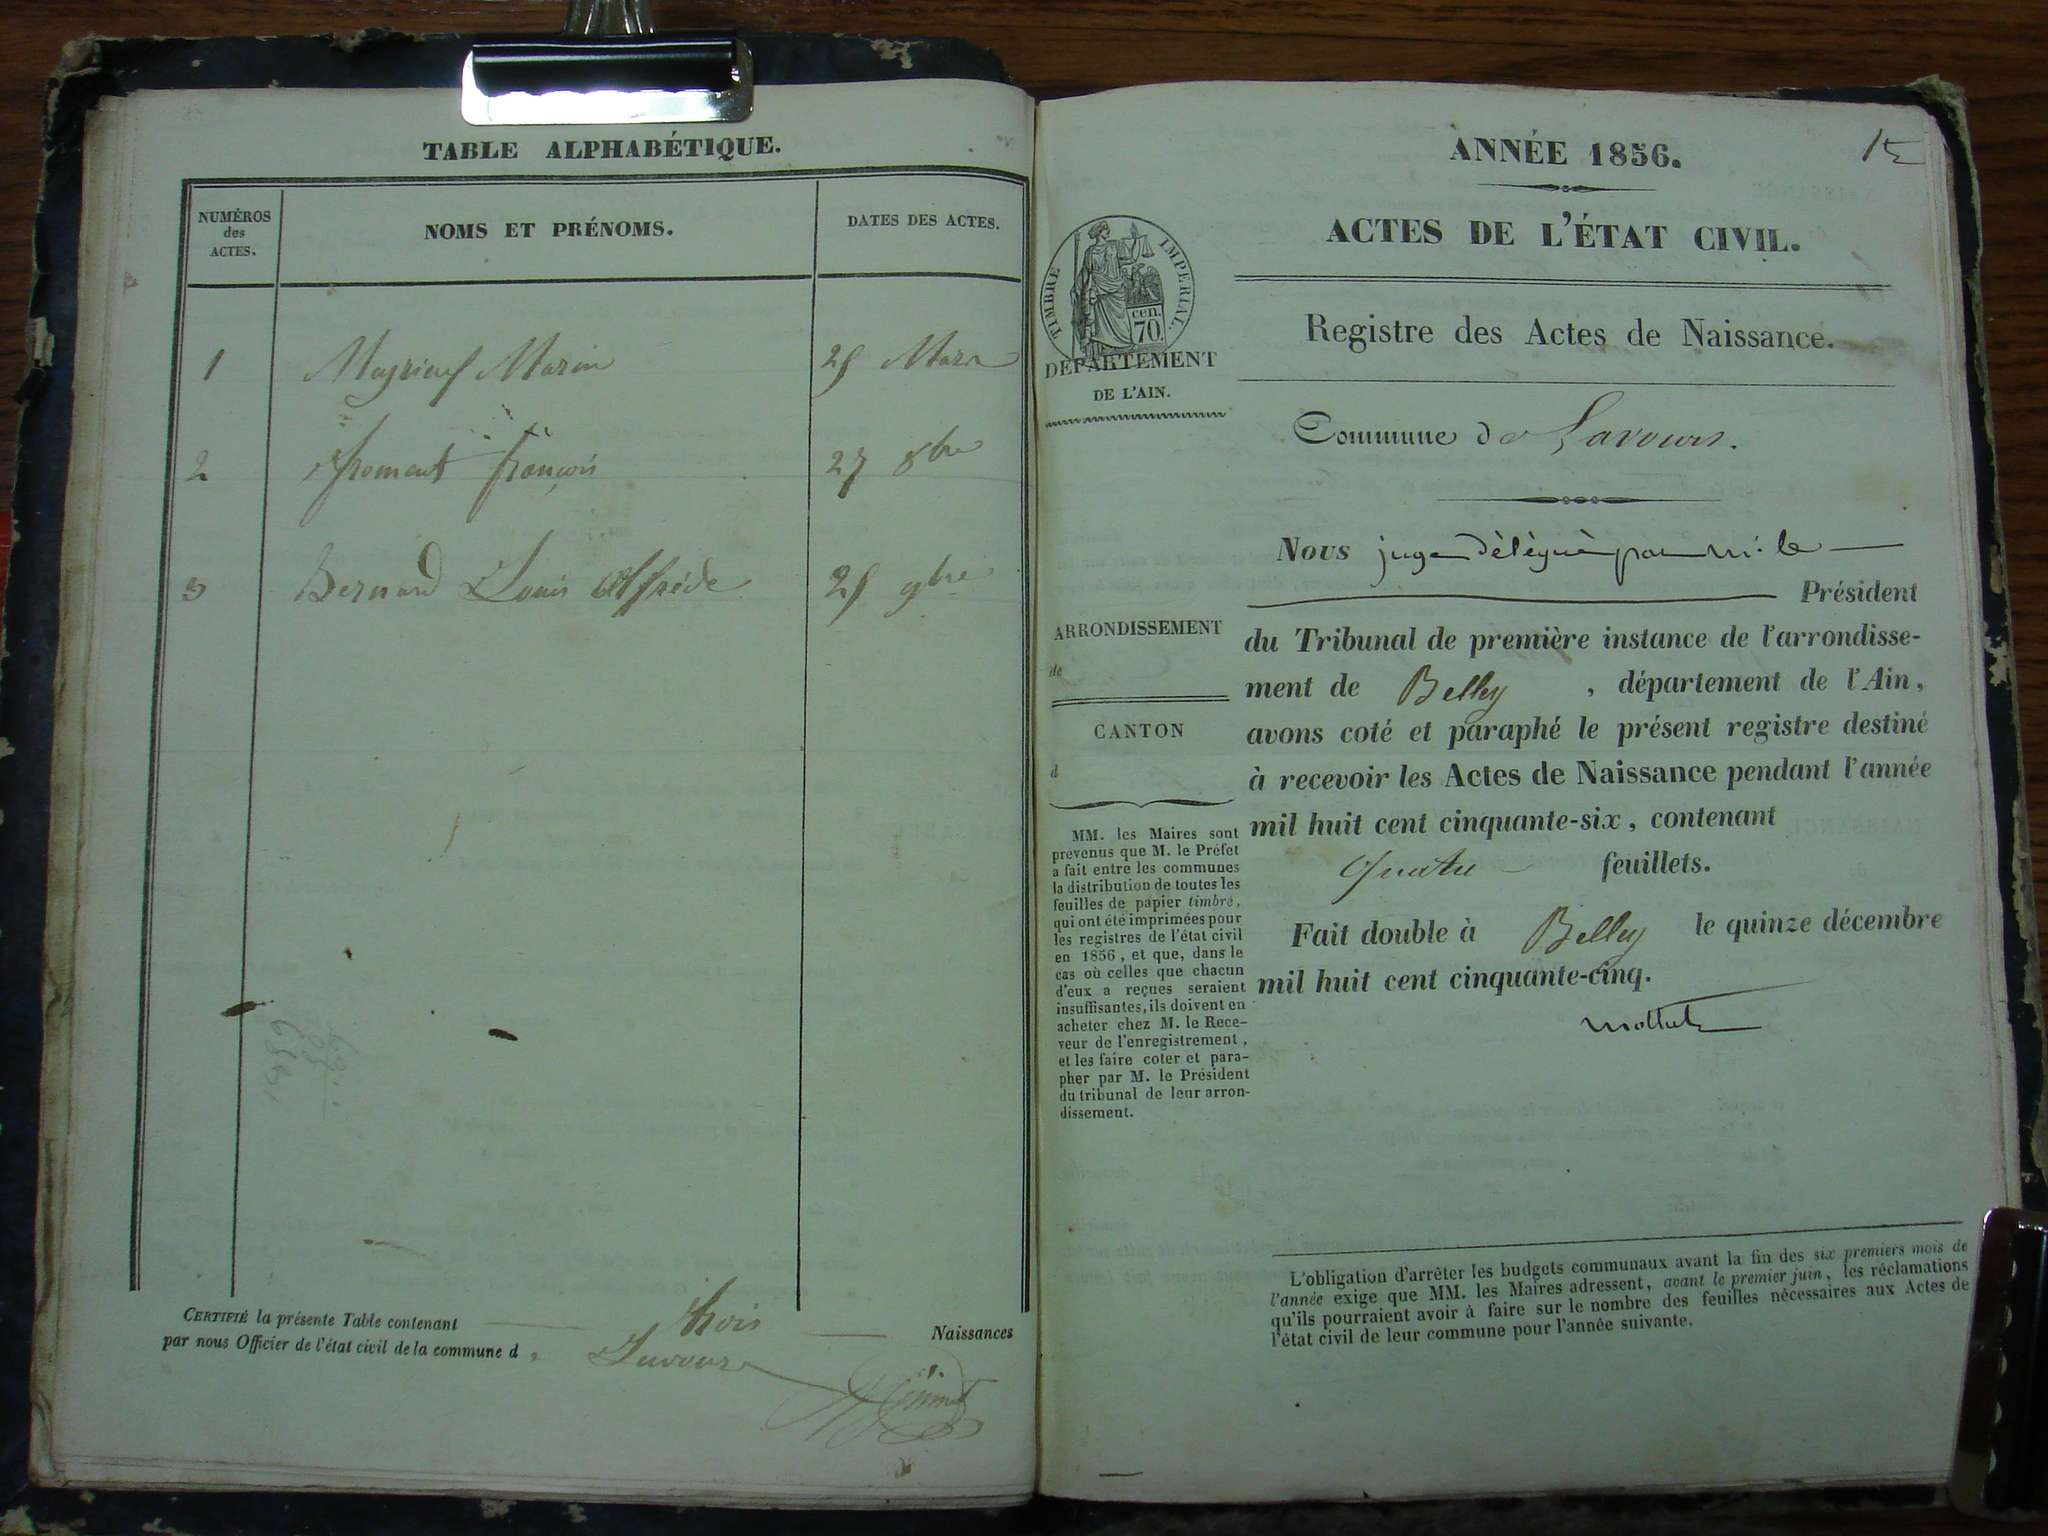 TABLE ALPHABÉTIQUE.
NUMÉROS
des
ACTES.
NOMS ET PRÉNOMS.
DATES DES ACTES.
1 Marin 25 Mars
2 froment françois 27 8bre
3 Bernard Louis Alfréde 25 9bre
CERTIFIÉ la présente Table contenant trois Naissances
par nous Officier de l'état civil de la commune d e Lavours
ANNÉE 1856.
ACTES DE L'ÉTAT CIVIL.
Registre des Actes de Naissance.
TIMBRE IMPERIAL.
cen.
70.
DÉPARTEMENT
DE L'AIN.
Commune de Lavours.
Nous juge délégué par m. le
Président
du Tribunal de première instance de l'arrondisse-
ment de Belley , département de l'Ain,
avons coté et paraphé le présent registre destiné
à recevoir les Actes de Naissance pendant l'année
mil huit cent cinquante-six, contenant
Quatre feuillets.
Fait double à Belley le quinze décembre
mil huit cent cinquante-cinq.
ARRONDISSEMENT
de
CANTON
d
MM. les Maires sont
prévenus que M. le Préfet
a fait entre les communes
la distribution de toutes les
feuilles de papier timbré,
qui ont été imprimées pour
les registres de l'état civil
en 1856, et que, dans le
cas où celles que chacun
d'eux a reçues seraient
insuffisantes, ils doivent en
acheter chez M. le Rece-
veur de l'enregistrement,
et les faire coter et para-
pher par M. le Président
du tribunal de leur arron-
dissement.
L'obligation d'arrêter les budgets communaux avant la fin des six premiers mois de
l'année exige que MM. les Maires adressent, avant le premier juin, les réclamations
qu'ils pourraient avoir à faire sur le nombre des feuilles nécessaires aux Actes de
l'état civil de leur commune pour l'année suivante.